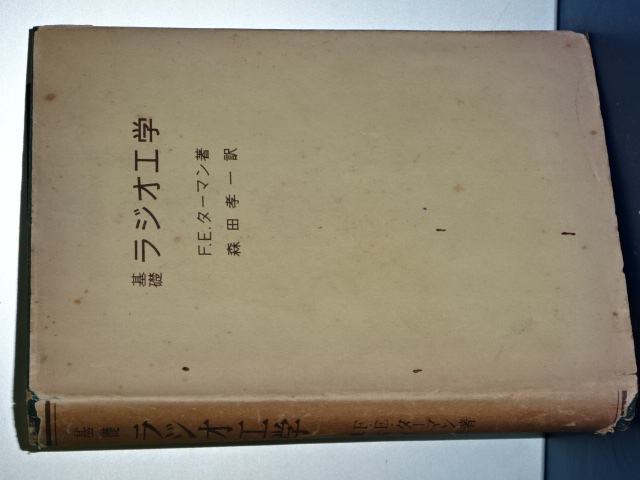 基礎
ラジオ工学
F.E.ターマン著
森田孝一訳
基礎
ラジオ工学
F.E.ターマン著